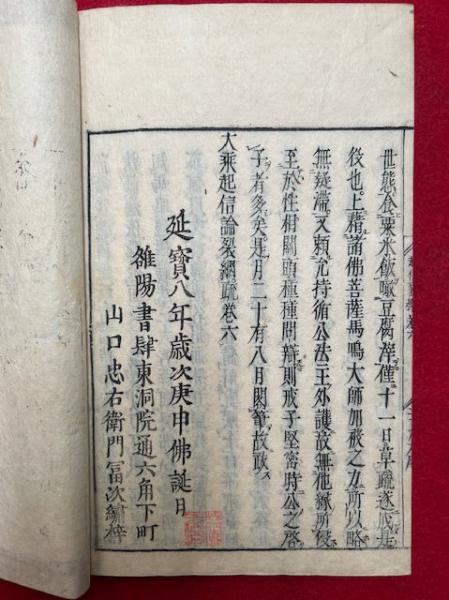 世態食粟米飯啜豆腐滓僅十一日草疏遂成
後也上藉諸佛菩薩馬鳴大師加被之力所以略
無疑滯又頼允持循公法王外護故無他緣所侵
至於性相關頭種種問辯則戒子堅密時公之啓
予者多矣是月二十有八月閣筆故跋
大乘起信論裂網疏卷六
延寶八年歳次庚申佛誕日
雒陽書肆東洞院通六角下町
山口忠右衛門冨次繡梓